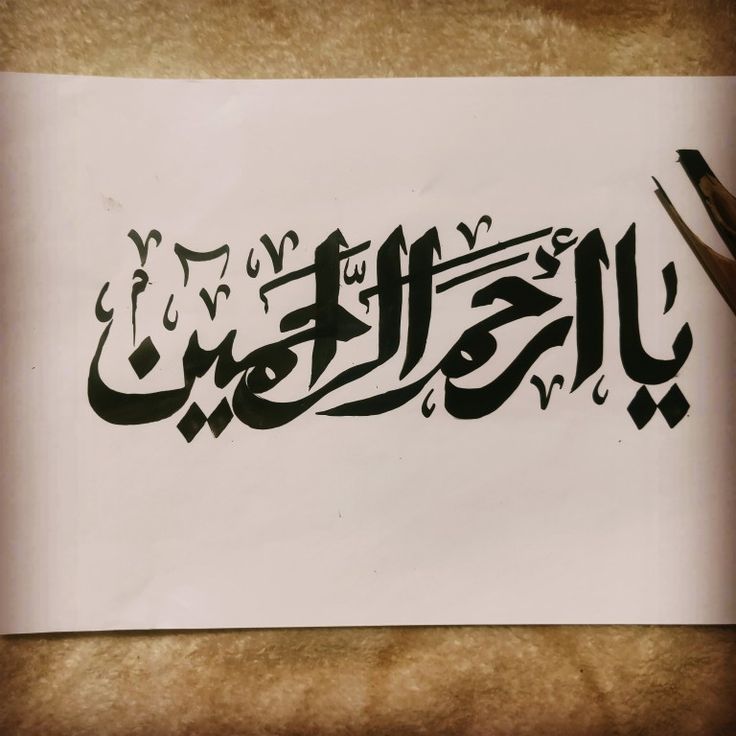 يا أرحم الراحمين